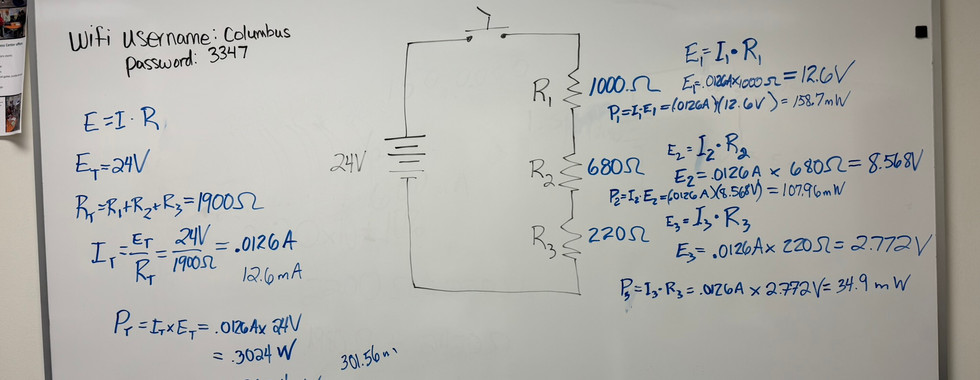 Wifi username: Columbus
Password: 3347
E=I·R
E_T=24V
R_T=R₁+R₂+R₃=1900Ω
I_T=E_T/R_T=24V/1900Ω=.0126A
12.6mA
P_T=I_T×E_T=.0126A×24V
=.3024W
301.56m
24V
R₁ 1000Ω
R₂ 680Ω
R₃ 220Ω
E₁=I₁·R₁
E₁=.0126A×1000Ω=12.6V
P₁=I₁·E₁=(.0126A)(12.6V)=158.7mW
E₂=I₂·R₂
E₂=.0126A × 680Ω=8.568V
P₂=I₂·E₂=(.0126A)(8.568V)=107.96mW
E₃=I₃·R₃
E₃=.0126A×220Ω=2.772V
P₃=I₃·R₃=.0126A×2.772V=34.9mW